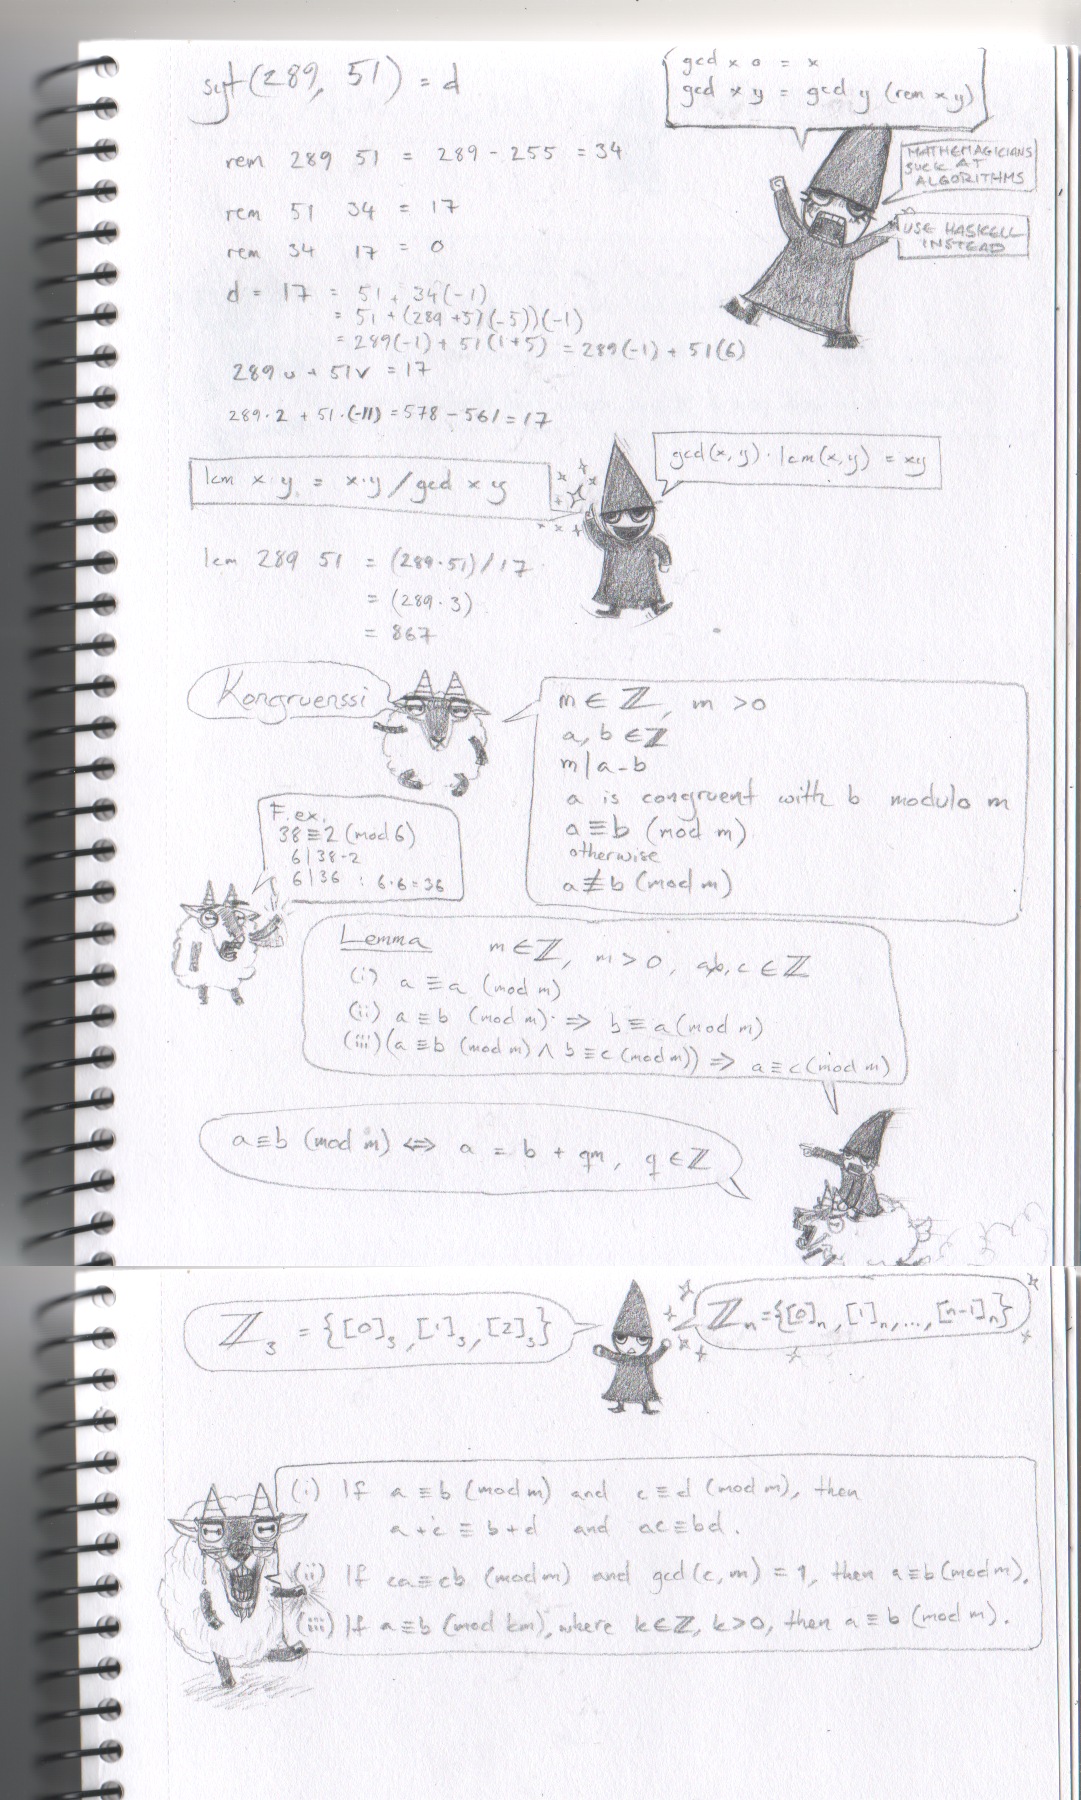 syt(289, 51) = d
gcd x 0 = x
gcd x y = gcd y (rem x y)
MATHEMAGICIANS
SUCK AT
ALGORITHMS
USE HASKELL
INSTEAD
rem 289 51 = 289 - 255 = 34
rem 51 34 = 17
rem 34 17 = 0
d = 17 = 51 + 34(-1)
= 51 + (289 + 51(-5))(-1)
= 289(-1) + 51(1+5) = 289(-1) + 51(6)
289u + 51v = 17
289·2 + 51·(-11) = 578 - 561 = 17
gcd(x,y)·lcm(x,y) = xy
lcm x y = x·y / gcd x y
lcm 289 51 = (289·51)/17
= (289·3)
= 867
Kongruenssi
m ∈ ℤ, m > 0
a, b ∈ ℤ
m | a - b
a is congruent with b modulo m
a ≡ b (mod m)
otherwise
a ≢ b (mod m)
F.ex.
38 ≡ 2 (mod 6)
6 | 38-2
6 | 36 : 6·6 = 36
Lemma m ∈ ℤ, m > 0, a,b,c ∈ ℤ
(i) a ≡ a (mod m)
(ii) a ≡ b (mod m) ⇒ b ≡ a (mod m)
(iii) (a ≡ b (mod m) ∧ b ≡ c (mod m)) ⇒ a ≡ c (mod m)
a ≡ b (mod m) ⇔ a = b + qm, q ∈ ℤ
ℤ₃ = {[0]₃, [1]₃, [2]₃}
ℤₙ = {[0]ₙ, [1]ₙ, ..., [n-1]ₙ}
(i) If a ≡ b (mod m) and c ≡ d (mod m), then
a + c ≡ b + d and ac ≡ bd.
(ii) If ca ≡ cb (mod m) and gcd(c, m) = 1, then a ≡ b (mod m).
(iii) If a ≡ b (mod km), where k ∈ ℤ, k > 0, then a ≡ b (mod m).